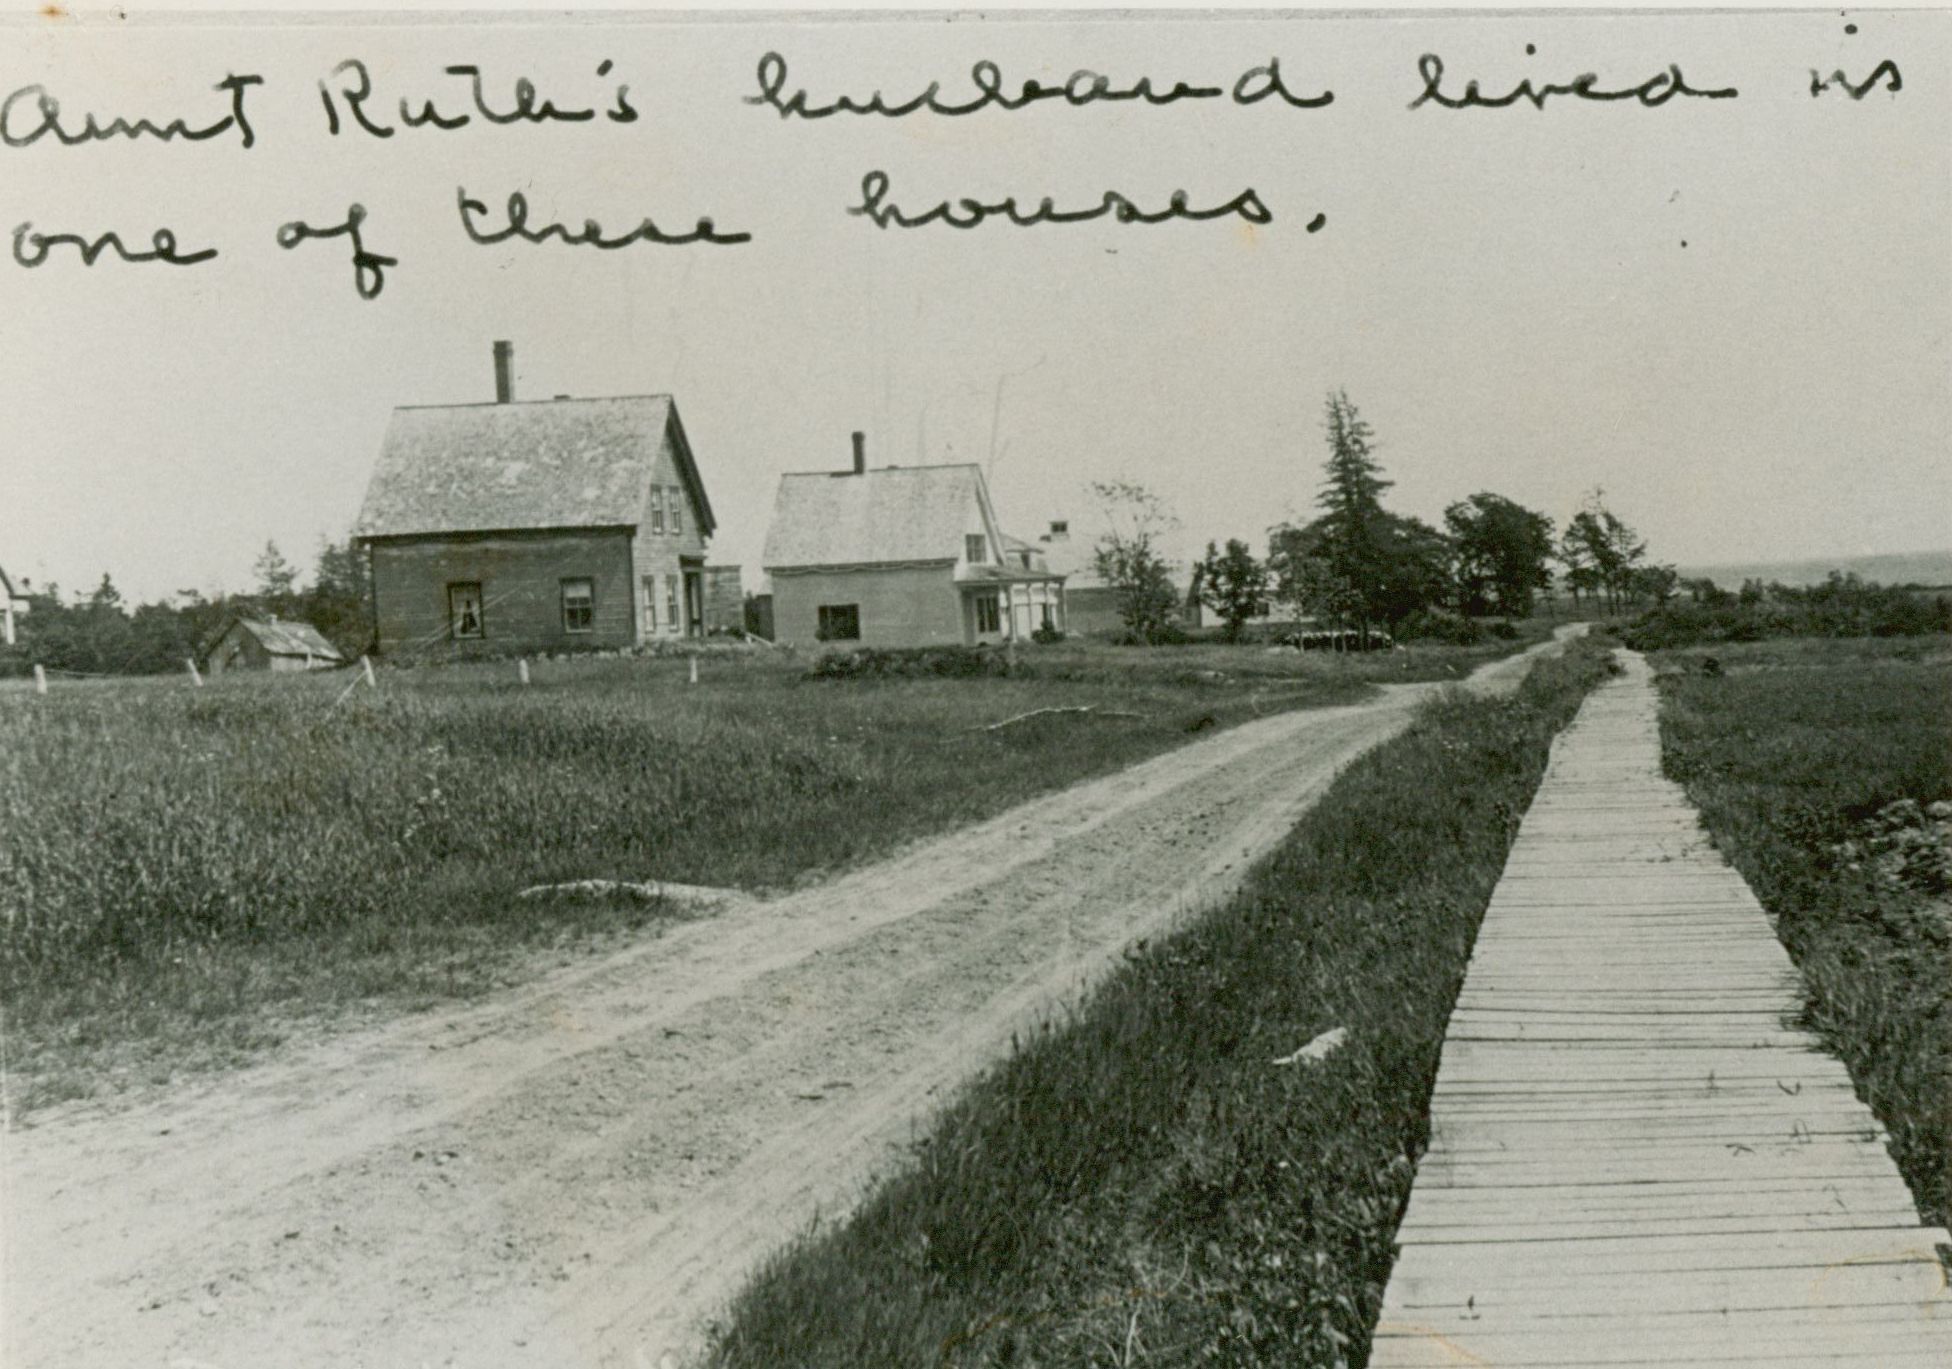 Aunt Ruth's husband lived in
one of these houses.